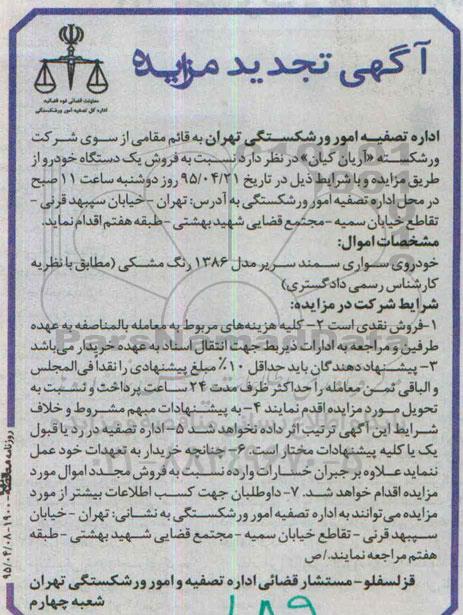 آگهی تجدید مزایده
معاونت قضائی قوه قضائیه
اداره کل تصفیه امور ورشکستگی
اداره تصفیه امور ورشکستگی تهران به قائم مقامی از سوی شرکت
ورشکسته «آریان کیان» در نظر دارد نسبت به فروش یک دستگاه خودرو از
طریق مزایده و با شرایط ذیل در تاریخ ۹۵/۰۴/۲۱ روز دوشنبه ساعت ۱۱ صبح
در محل اداره تصفیه امور ورشکستگی به آدرس: تهران - خیابان سپهبد قرنی -
تقاطع خیابان سمیه - مجتمع قضایی شهید بهشتی - طبقه هفتم اقدام نماید.
مشخصات اموال:
خودروی سواری سمند سریر مدل ۱۳۸۶ رنگ مشکی (مطابق با نظریه
کارشناس رسمی دادگستری)
شرایط شرکت در مزایده:
۱- فروش نقدی است ۲- کلیه هزینه‌های مربوط به معامله بالمناصفه به عهده
طرفین و مراجعه به ادارات ذیربط جهت انتقال اسناد به عهده خریدار می‌باشد
۳- پیشنهاد دهندگان باید حداقل ۱۰٪ مبلغ پیشنهادی را نقدا فی‌المجلس
و الباقی ثمن معامله را حداکثر ظرف مدت ۲۴ ساعت پرداخت و نسبت به
تحویل مورد مزایده اقدم نمایند ۴- به پیشنهادات مبهم مشروط و خلاف
شرایط این آگهی ترتیب اثر داده نخواهد شد ۵- اداره تصفیه در رد یا قبول
یک یا کلیه پیشنهادات مختار است. ۶- چنانچه خریدار به تعهدات خود عمل
ننماید علاوه بر جبران خسارات وارده نسبت به فروش مجدد اموال مورد
مزایده اقدام خواهد شد. ۷- داوطلبان جهت کسب اطلاعات بیشتر از مورد
مزایده می‌توانند به اداره تصفیه امور ورشکستگی به نشانی: تهران - خیابان
سپهبد قرنی - تقاطع خیابان سمیه - مجتمع قضایی شهید بهشتی - طبقه
هفتم مراجعه نمایند./ص
قزلسفلو - مستشار قضائی اداره تصفیه و امور ورشکستگی تهران
شعبه چهارم
۱۸۹
ParsNamadData